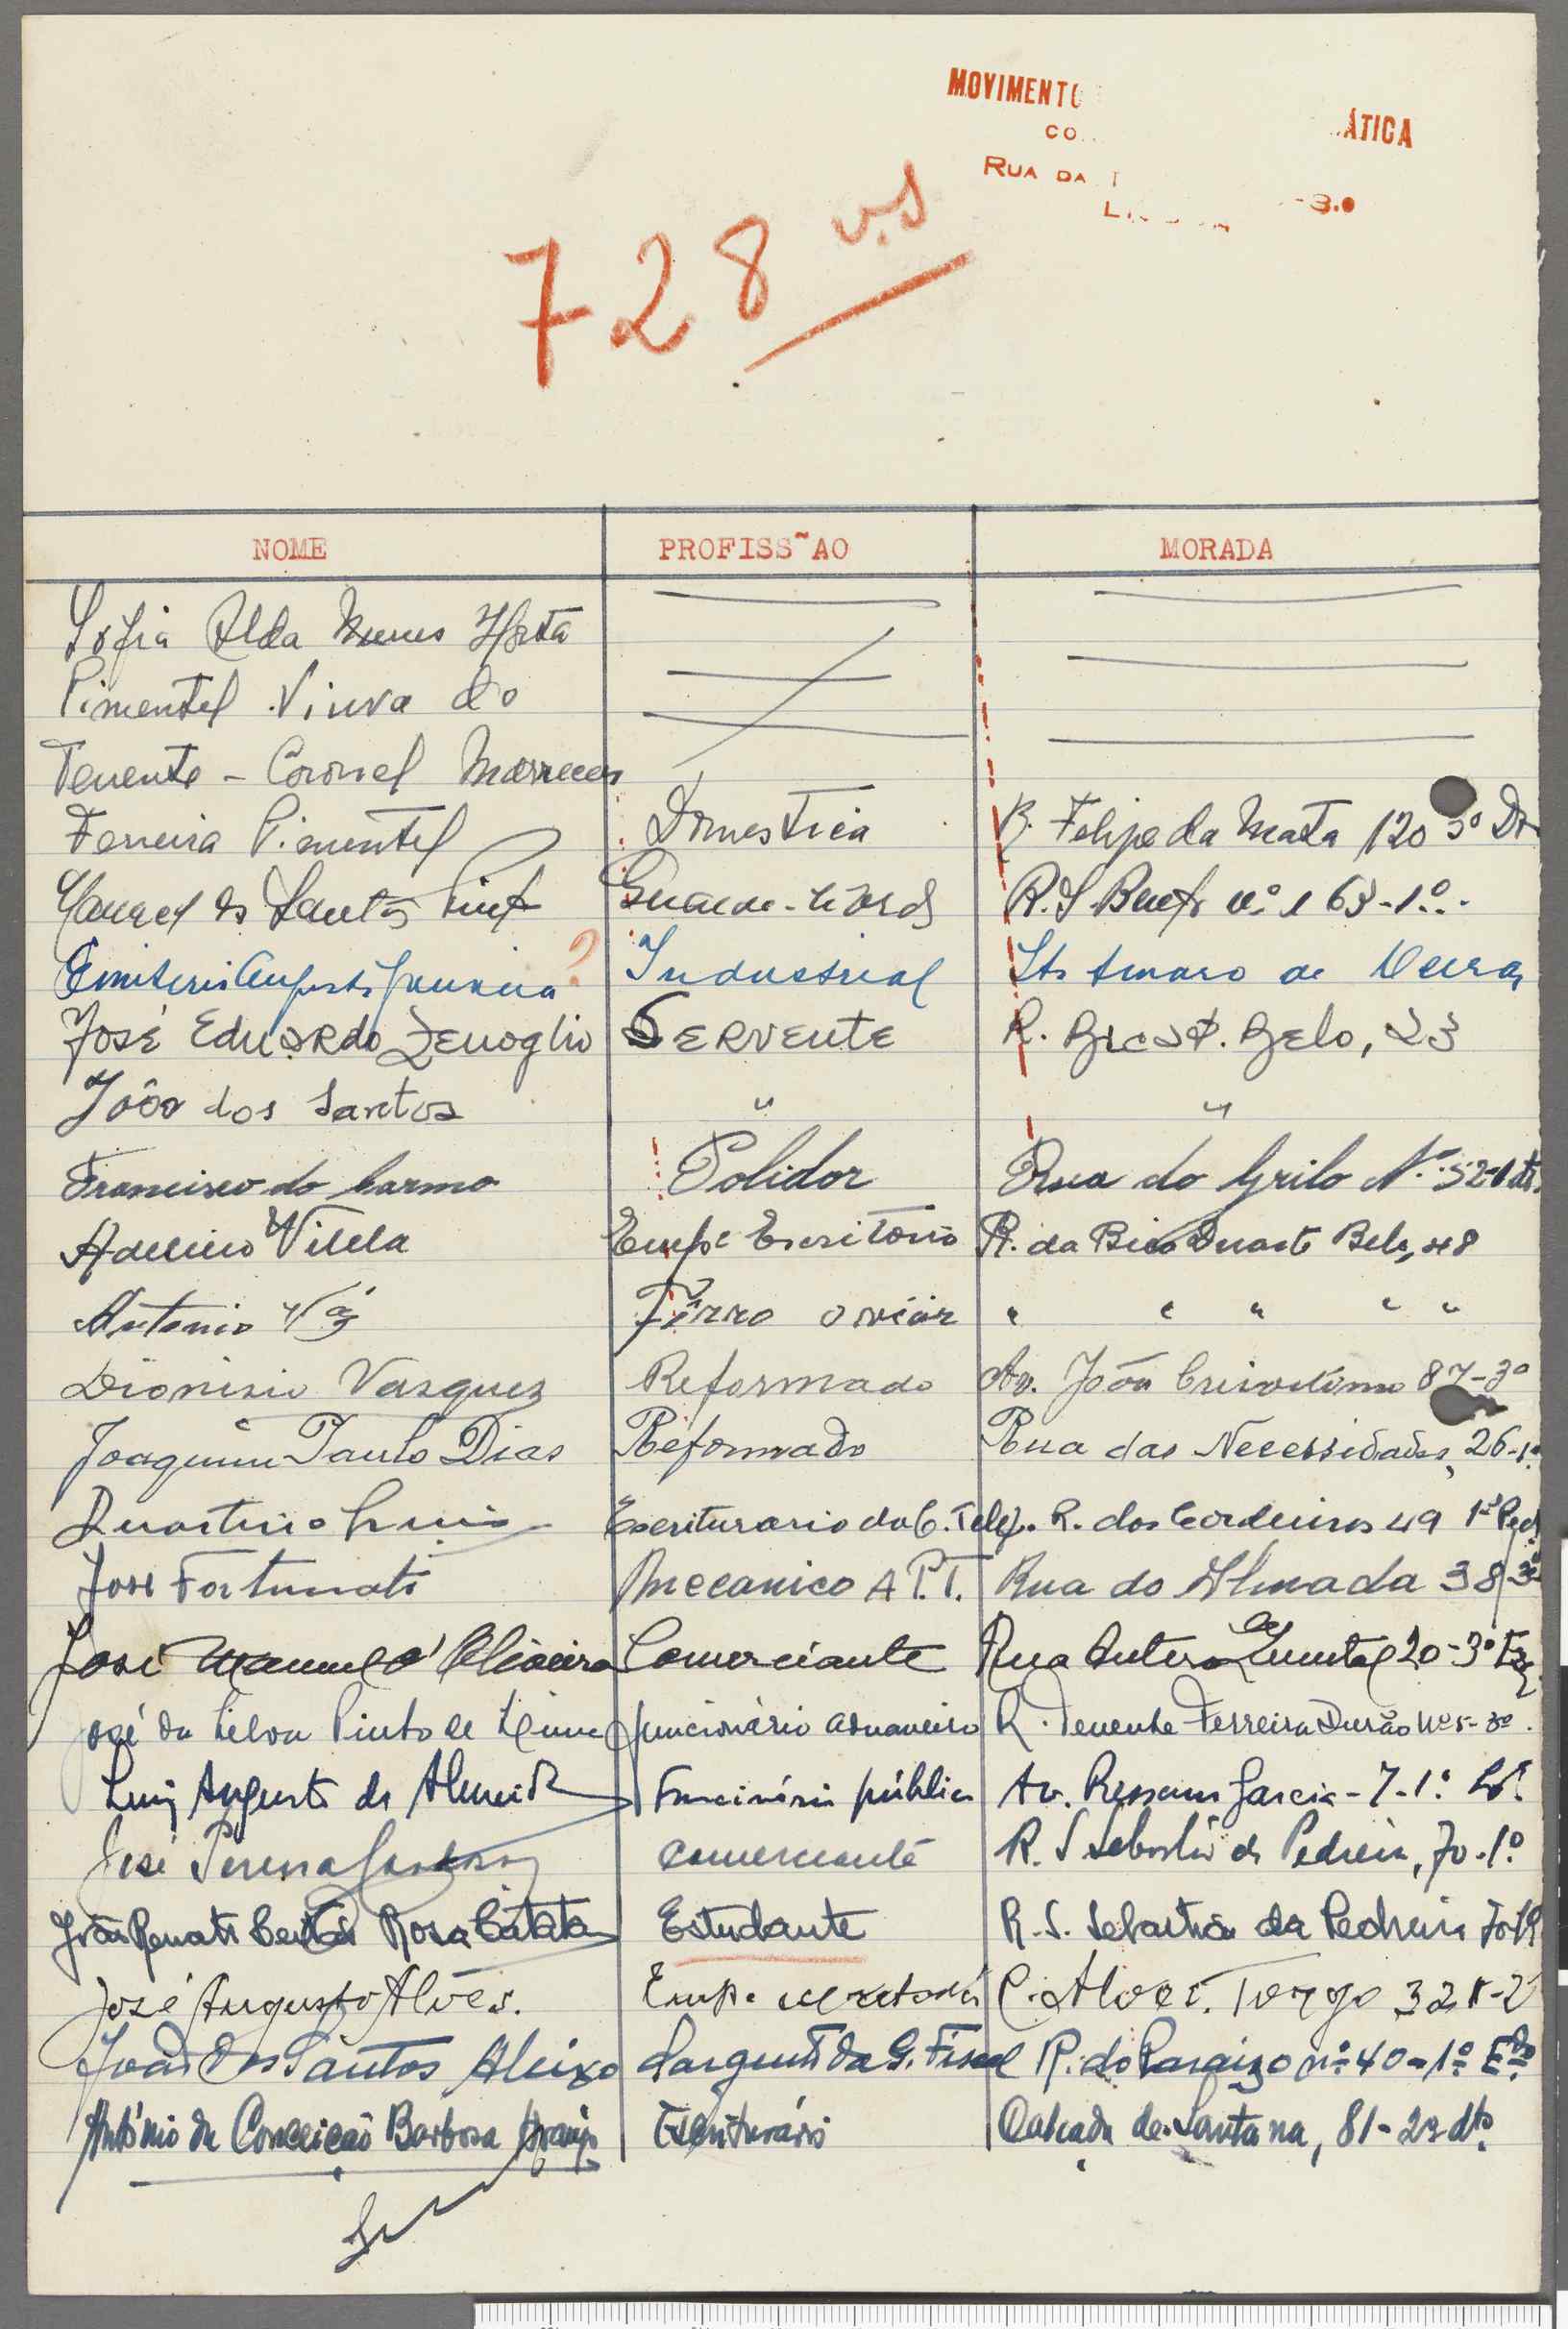 MOVIMENTO ÁTICA
CO
RUA DA
-3.º
728 v.s
NOME PROFISS~AO MORADA
Sofia Alda Nunes Horta
Pimentel Viuva do
Tenente - Coronel Marrecas
Ferreira Pimentel Domestica R. Felipe da Mata 120 3º Dto
Manuel dos Santos Guarda-livros R. S. Bento nº 163-1º.
? Industrial Sto Amaro de Oeiras
José Eduardo Zenoglio SERVENTE R. Bica D. Belo, 23
João dos Santos " "
Francisco do Carmo Polidor Rua do Grilo Nº 52-1 dto.
Adelino Vilela Empº Escritorio R. da Bica Duarte Belo, 48
Antonio Vaz Férro oviár " " " " "
Dionisio Vasquez Reformado Av. João Crisostomo 87-3º
Joaquim Paulo Dias Reformado Rua das Necessidades, 26-1º
Quartino Luis Escriturario da C. Telef. R. dos Cordeiros 49 1º
José Fortunato Mecanico A P.T. Rua do Almada 38 3º
José Manuel d'Oliveira Comerciante Rua Antero de Quental 20-3º Esq
José da Silva Pinto de Lima funcionário aduaneiro R. Tenente Ferreira Durão Nº 5-3º.
Luiz Augusto de Almeida Funcionário público Av. Ressano Garcia-7-1º
José Pereira comerciante R. S Sebastião da Pedreira, 70-1º
João Renato Rosa Batata Estudante R. S. Sebastião da Pedreira 70-1º
José Augusto Alves. Emp. escritório R. Alves Torgo 328-2
João dos Santos Aleixo Sargento da G. Fiscal R. do Paraizo nº 40-1º Edo
António da Conceição Barbosa Araújo Escriturário Calçada de Santana, 81-2º dto.